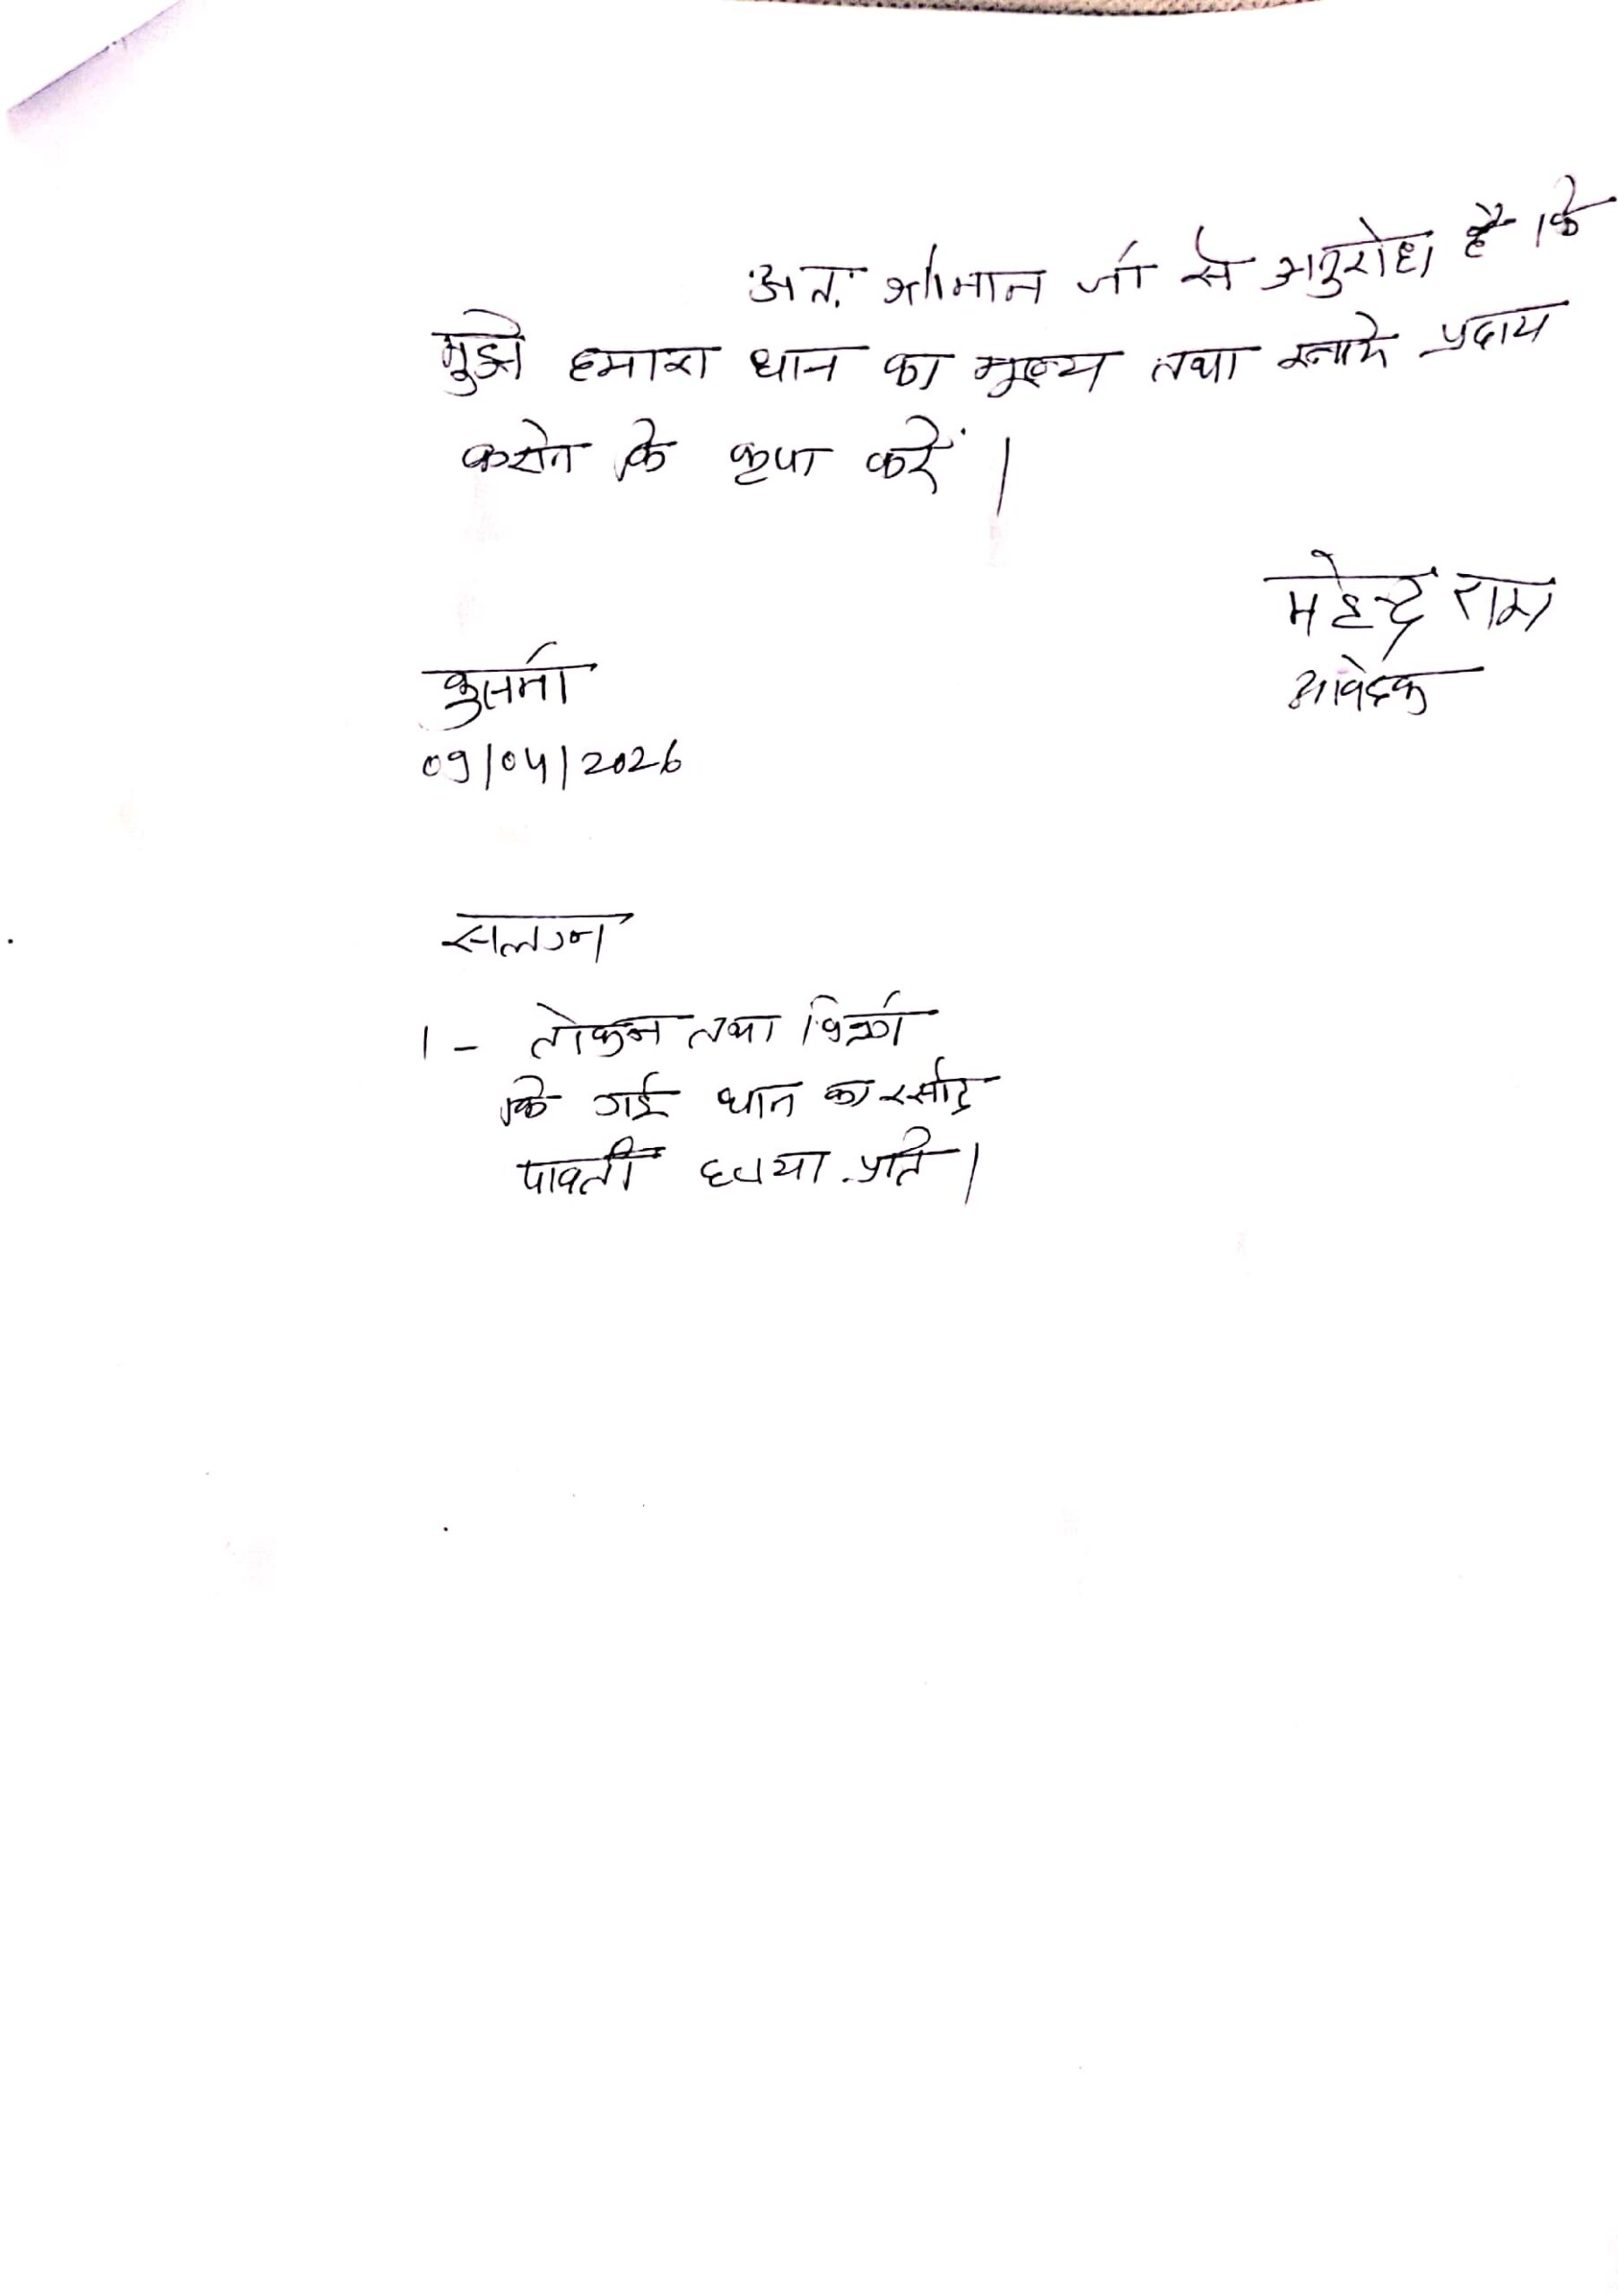 अतः श्रीमान जी से अनुरोध है कि
मुझे हमारा धान का मूल्य तथा प्रदाय
कि कृपा करें।
महेन्द्र राम
आवेदक
कुसमी
09/04/2026
सलग्न
1- तोकन तथा विक्री
कि गई धान का रसीद
पावती छाया प्रति।